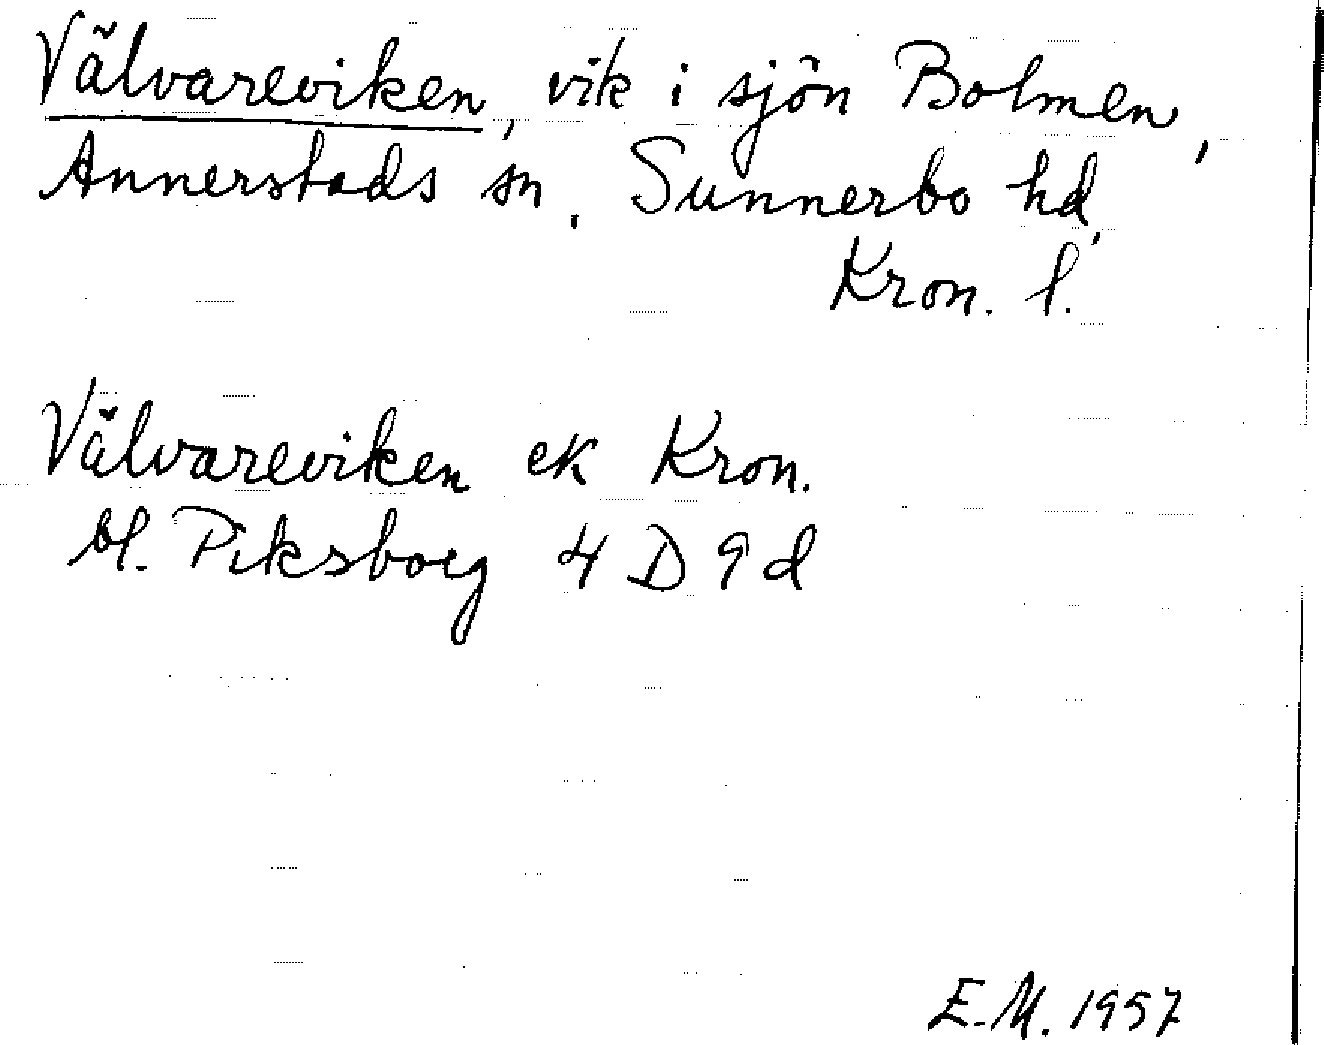 Välvareviken, vik i sjön Bolmen,
Annerstads sn, Sunnerbo hd,
Kron. l.
Välvareviken ek Kron.
bl. Piksborg 4 D 9 d
E.M. 1957